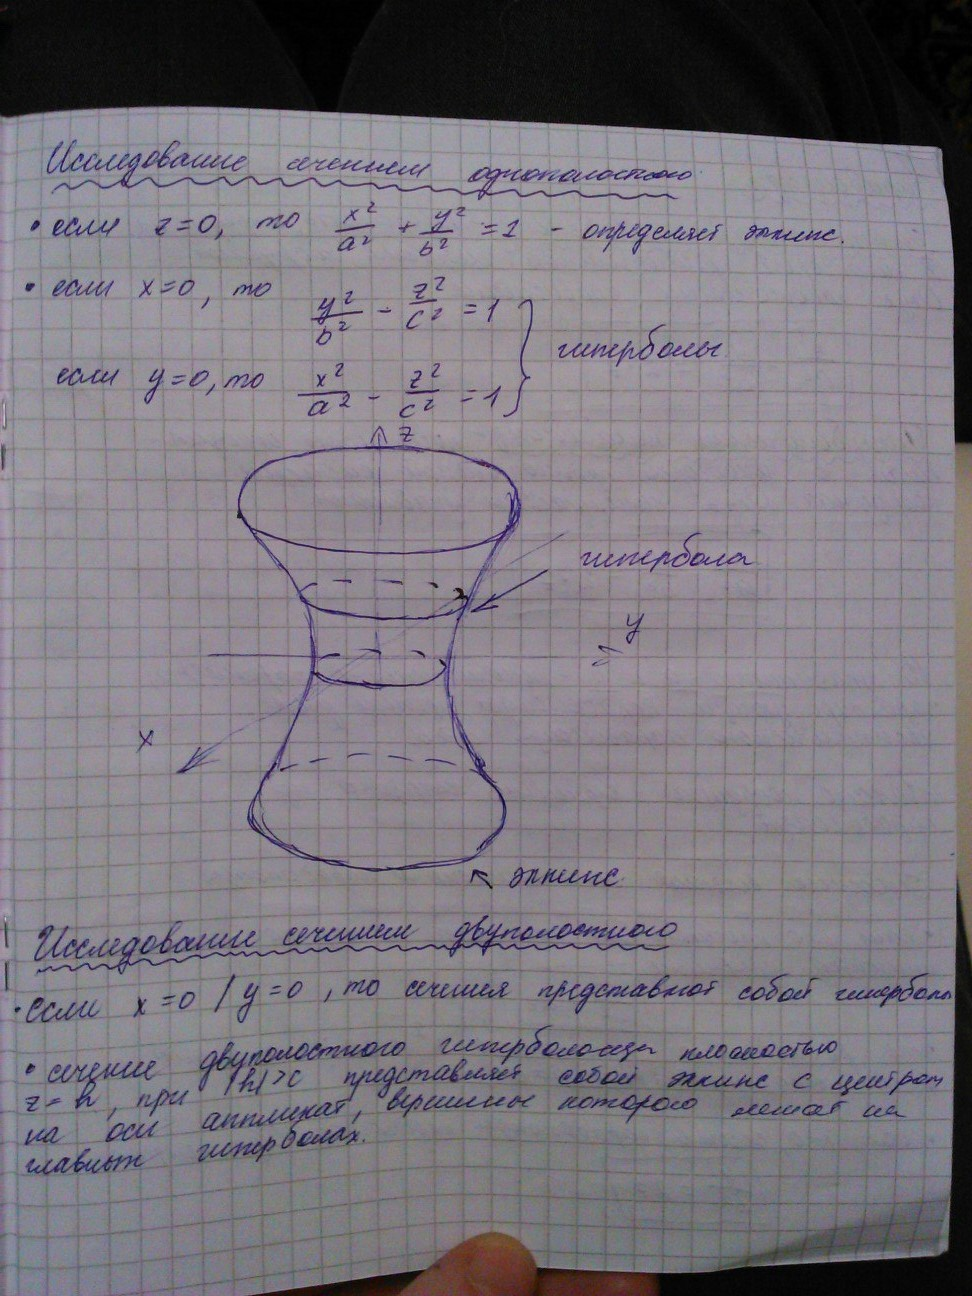 Исследование сечением однополостного
• если z=0, то x²/a² + y²/b² = 1 - определяет эллипс.
• если x=0, то y²/b² - z²/c² = 1
гиперболы
если y=0, то x²/a² - z²/c² = 1
z
гипербола
y
x
эллипс
Исследование сечением двуполостного
• если x=0 / y=0, то сечения представляют собой гиперболы
• сечение двуполостного гиперболоида плоскостью
z=h, при |h|>c представляет собой эллипс с центром
на оси аппликат, вершины которого лежат на
главных гиперболах.